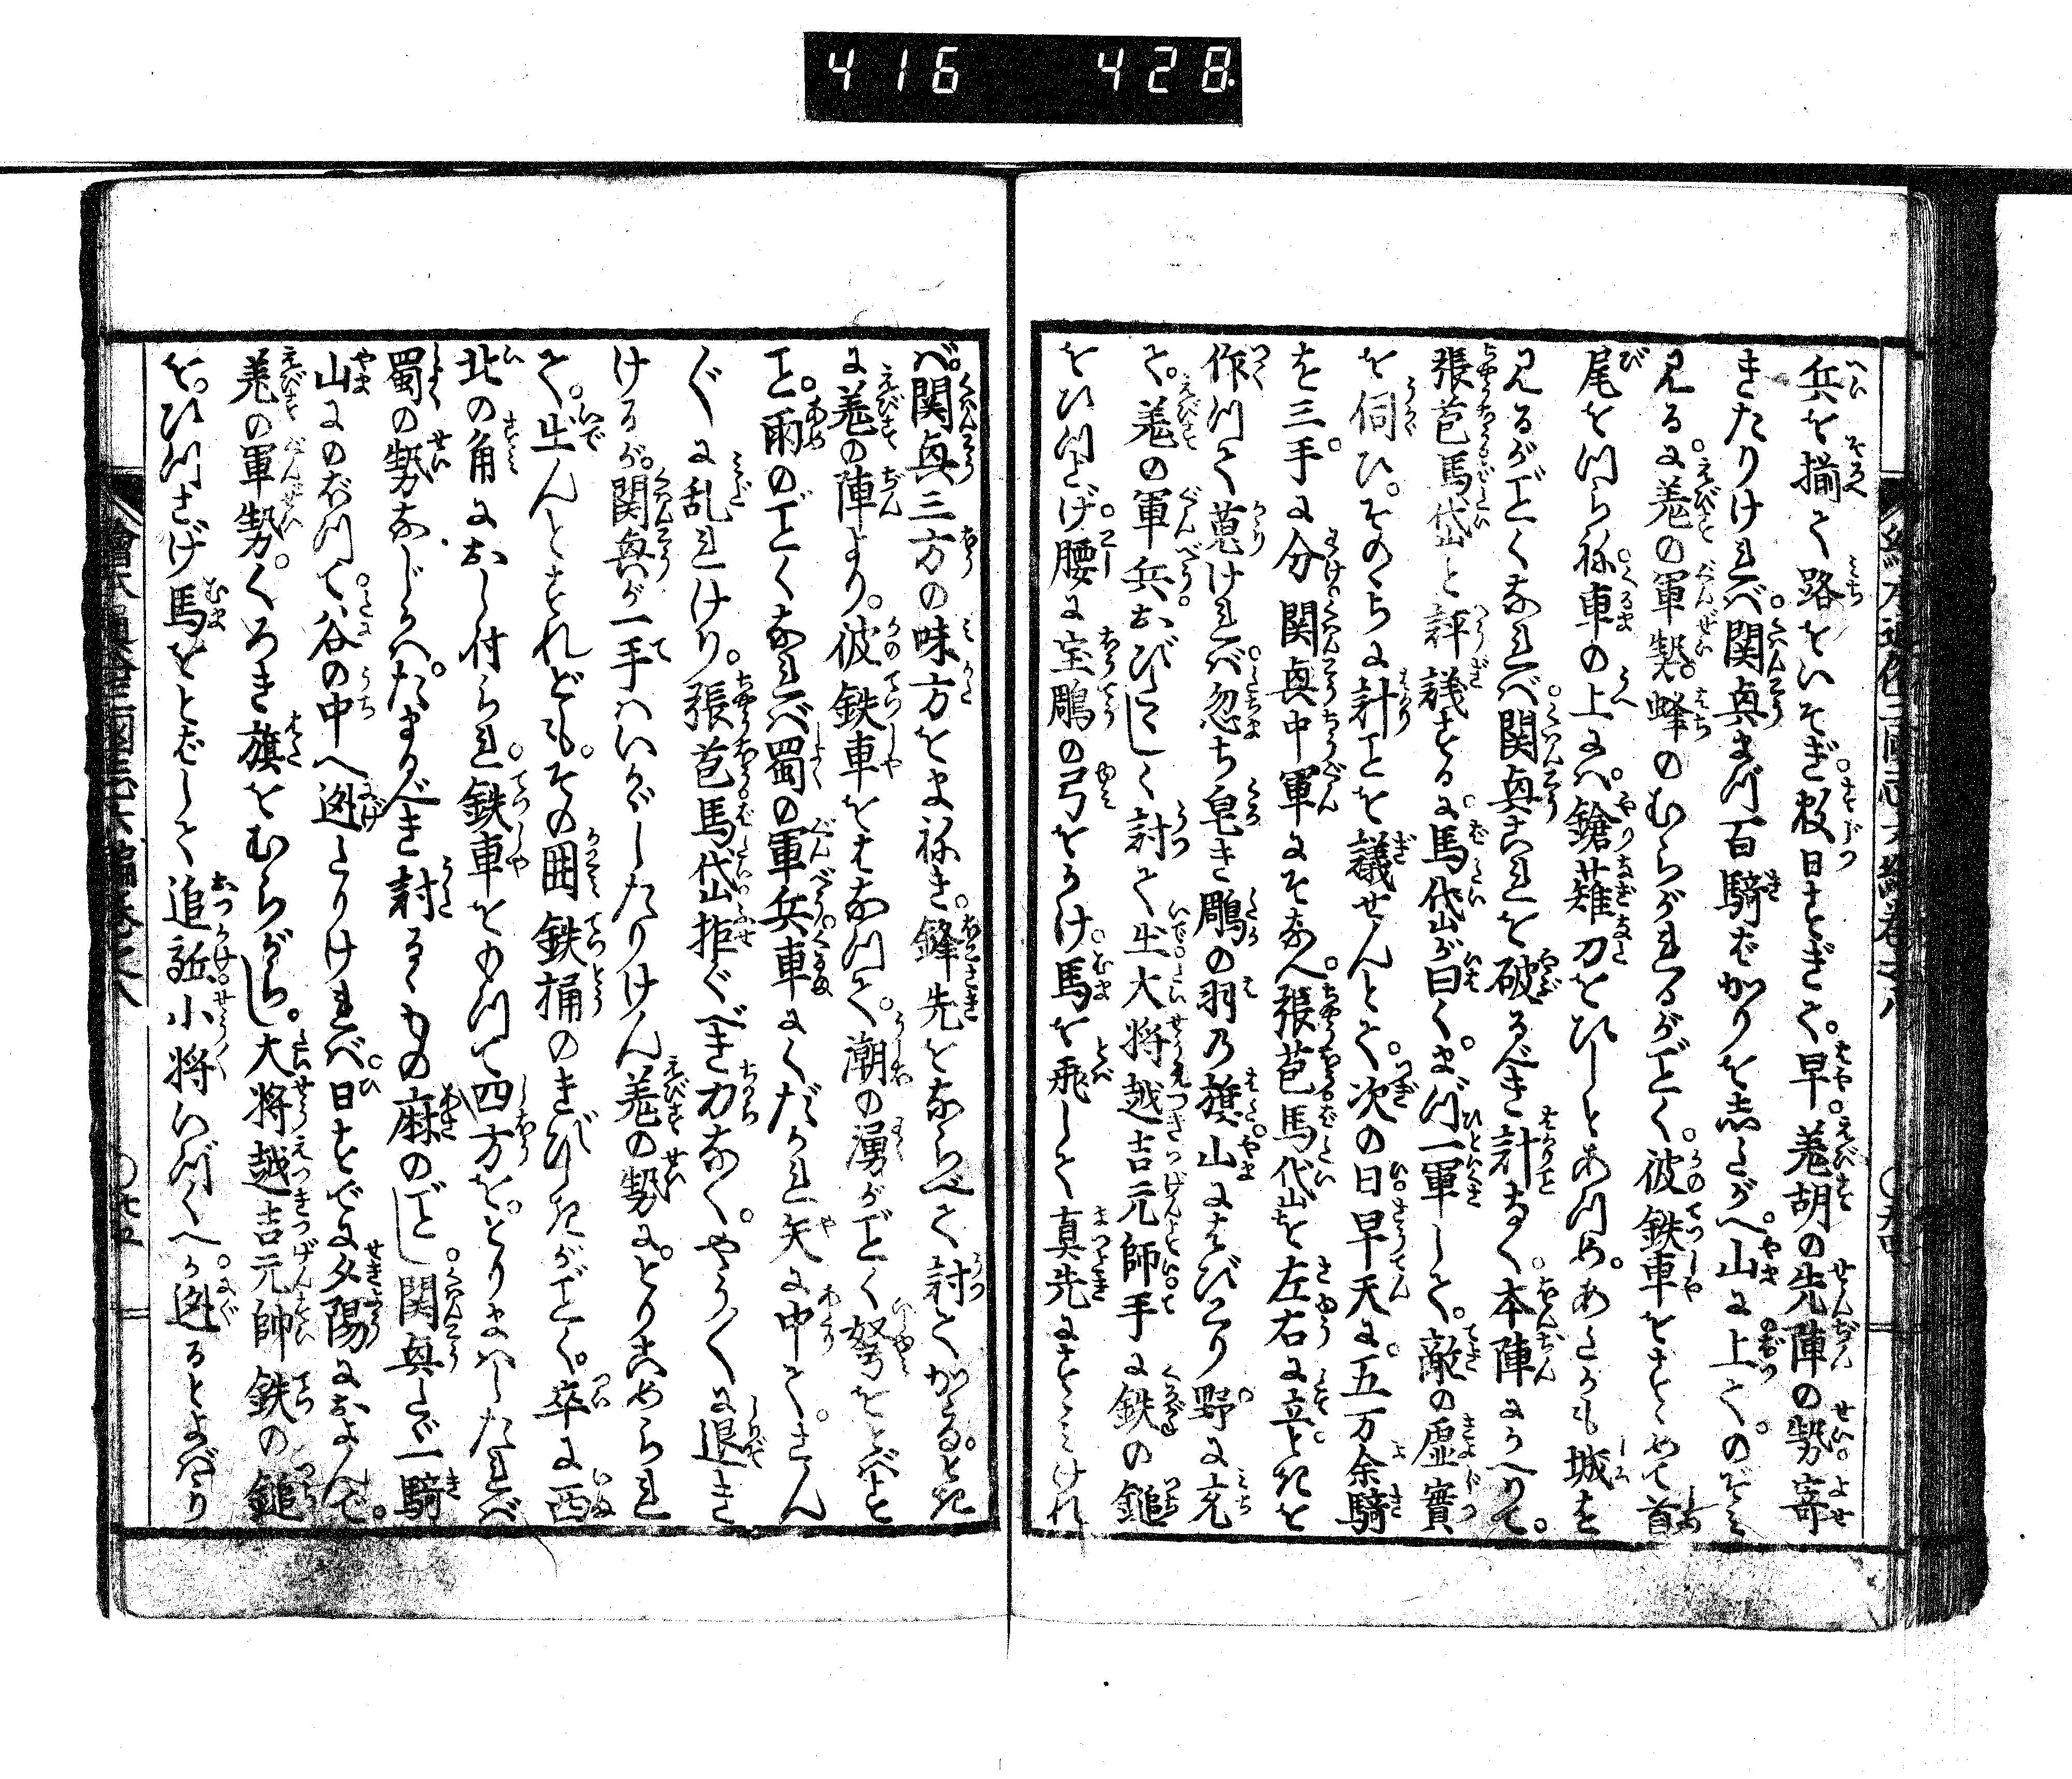 416 428
兵を揃て路をいそぎ。数日すぎて。早。羗胡の先陣の勢寄
きたりければ。関興まづ百騎ばかりをしたがへ。山に上て。のぞみ
見るに。羗の軍勢。蜂のむらがれるがごとく。彼鉄車をすゝめて首
尾をつらね。車の上には。鎗薙刀をひしとあつめ。あたかも城を
見るがごとくなれば。関興これを破るべき計なく。本陣にかへりて。
張苞馬岱と評議するに。馬岱が曰く。まづ一軍して。敵の虚實
を伺ひ。そのゝちに計ことを議せんとて。次の日早天に。五万余騎
を三手に分。関興中軍にそなへ。張苞馬岱を左右に立。ときを
作つて蒐ければ。忽ち皂き鵰の羽の旗。山にはびこり。野に充
て。羗の軍兵おびたゝしく討て出。大将越吉元師。手に鉄の鎚
をひつさげ。腰に宝鵰の弓をかけ。馬を飛して真先にすゝみけれ
ば。関興三方の味方をまねき。鋒先をならべて討てかゝる。とき
に羗の陣より。彼鉄車をはなつて。潮の湧がごとく弩をとばすこ
と。雨のごとくなれば。蜀の軍兵。車にくだかれ矢に中て。さん
〴〵に乱れけり。張苞。馬岱。拒ぐべき力なく。やう〳〵に退き
けるが。関興が一手はいかゞしたりけん。羗の勢に。とりこめられ
て。出んとすれども。その囲鉄桶のきびしきがごとく。卒に西
北の角におし付られ。鉄車をもつて四方を。とりまはしたれば
蜀の勢なじかは。たまるべき。討るゝもの麻のごとし。関興たゞ一騎
山にのぼつて。谷の中へ迯さりければ。日すでに夕陽におよんで。
羗の軍勢。くろき旗をむらがらし。大将越吉元帥鉄の鎚
を。ひつさげ馬をとばして追訴。小将いづくへか。迯るとよばゝり